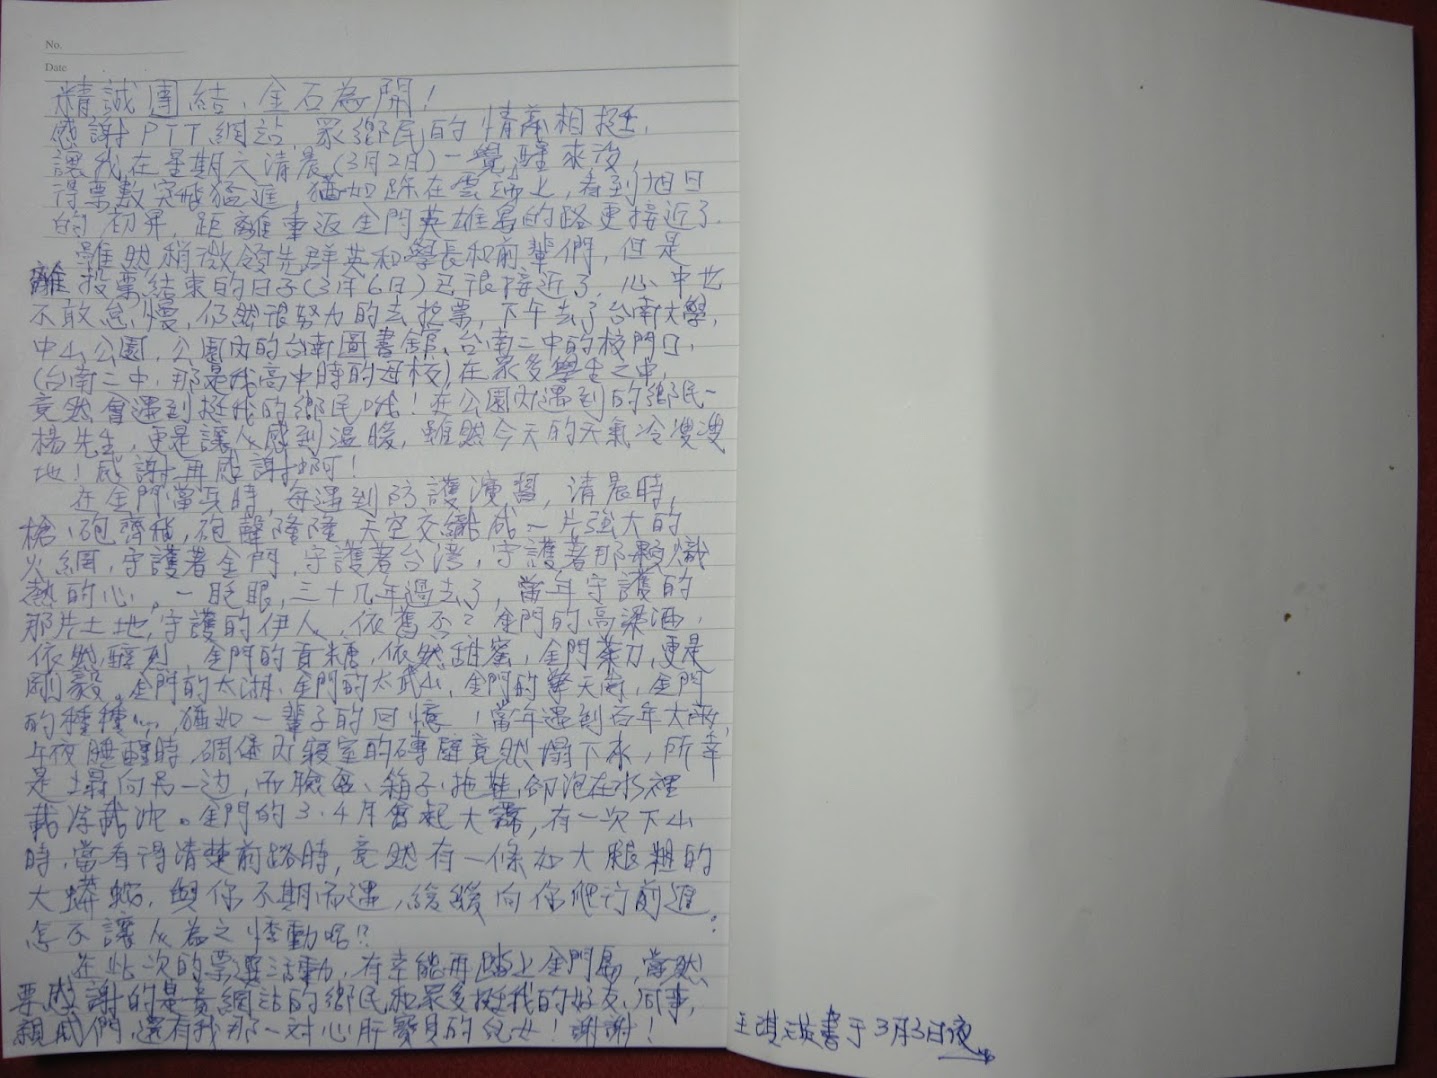 No.
Date
精誠團結、金石為開!
感謝PTT網站 眾鄉民的情義相挺,
讓我在星期六清晨(3月2日)一覺醒來後,
得票數突飛猛進,猶如跺在雲端上,看到旭日
的初昇,距離重返金門英雄島的路更接近了.
雖然稍微領先群英和學長和前輩們,但是
離投票結束的日子(3月6日)已很接近了,心中也
不敢怠慢,仍然很努力的去拉票,下午去了台南大學,
中山公園,公園內的台南圖書館、台南二中的校門口,
(台南二中,那是我高中時的母校)在眾多學生之中,
竟然會遇到挺我的鄉民哦!在公園內遇到的鄉民-
楊先生,更是讓人感到溫暖,雖然今天的天氣冷溲溲
地!感謝再感謝啊!
在金門當兵時,每遇到防護演習,清晨時,
槍、砲齊發,砲聲隆隆,天空交織成一片強大的
火網,守護著金門,守護著台灣,守護著那顆熾
熱的心。一眨眼,三十几年過去了,當年守護的
那片土地,守護的伊人,依舊否?金門的高梁酒,
依然醇烈,金門的貢糖,依然甜蜜,金門菜刀,更是
剛毅。金門的太湖、金門的太武山,金門的擎天崗,金門
的種種……,猶如一輩子的回憶!當年遇到百年大雨,
午夜睡醒時,碉堡內寢室的磚壁竟然塌下來,所幸
是塌向另一边,而臉盆、箱子、拖鞋,卻泡在水裡
載浮載沈。金門的3、4月會起大霧,有一次下山
時,當看得清楚前路時,竟然有一條如大腿粗的
大蟒蛇,與你不期而遇,緩緩向你爬行前進,
怎不讓人為之悸動呢??
在此次的票選活動,有幸能再踏上金門島,當然
要感謝的是貴網站的鄉民和眾多挺我的好友、同事,
親戚們,還有我那一对心肝寶貝的兒女!謝謝!
王淇琪書于3月3日夜